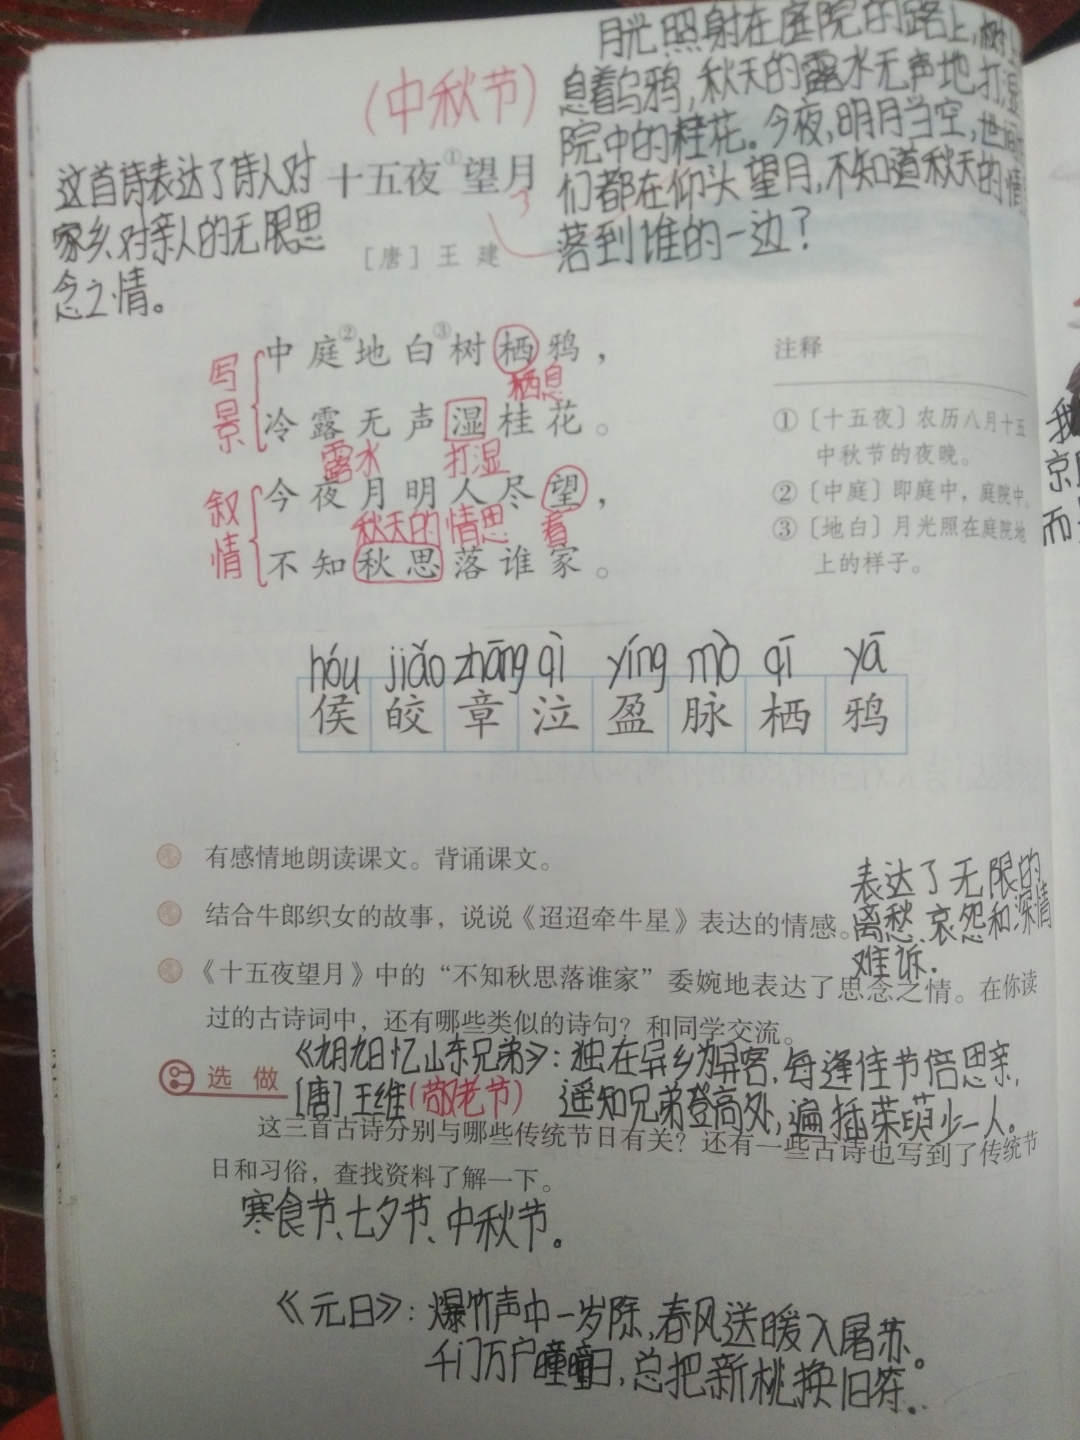 月光照射在庭院的路上,树上
息着乌鸦,秋天的露水无声地打湿
院中的桂花。今夜,明月当空,世间
们都在仰头望月,不知道秋天的情
落到谁的一边?
(中秋节)
十五夜①望月
3
[唐] 王 建
这首诗表达了诗人对
家乡、对亲人的无限思
念之情。
写景
中庭②地白③树栖鸦,
栖息
冷露无声湿桂花。
露水 打湿
叙情
今夜月明人尽望,
秋天的情思 看
不知秋思落谁家。
注释
① 〔十五夜〕农历八月十五
中秋节的夜晚。
② 〔中庭〕即庭中,庭院中。
③ 〔地白〕月光照在庭院地
上的样子。
我
京
而
hóu jiǎo zhāng qì yíng mò qī yā
侯 皎 章 泣 盈 脉 栖 鸦
有感情地朗读课文。背诵课文。
结合牛郎织女的故事,说说《迢迢牵牛星》表达的情感。
表达了无限的
离愁、哀怨和深情
难诉.
《十五夜望月》中的“不知秋思落谁家”委婉地表达了思念之情。在你读
过的古诗词中,还有哪些类似的诗句?和同学交流。
《九月九日忆山东兄弟》:独在异乡为异客,每逢佳节倍思亲,
[唐]王维(敬老节) 遥知兄弟登高处,遍插茱萸少一人。
选 做
这三首古诗分别与哪些传统节日有关?还有一些古诗也写到了传统节
日和习俗,查找资料了解一下。
寒食节、七夕节、中秋节。
《元日》:爆竹声中一岁除,春风送暖入屠苏。
千门万户曈曈日,总把新桃换旧符。